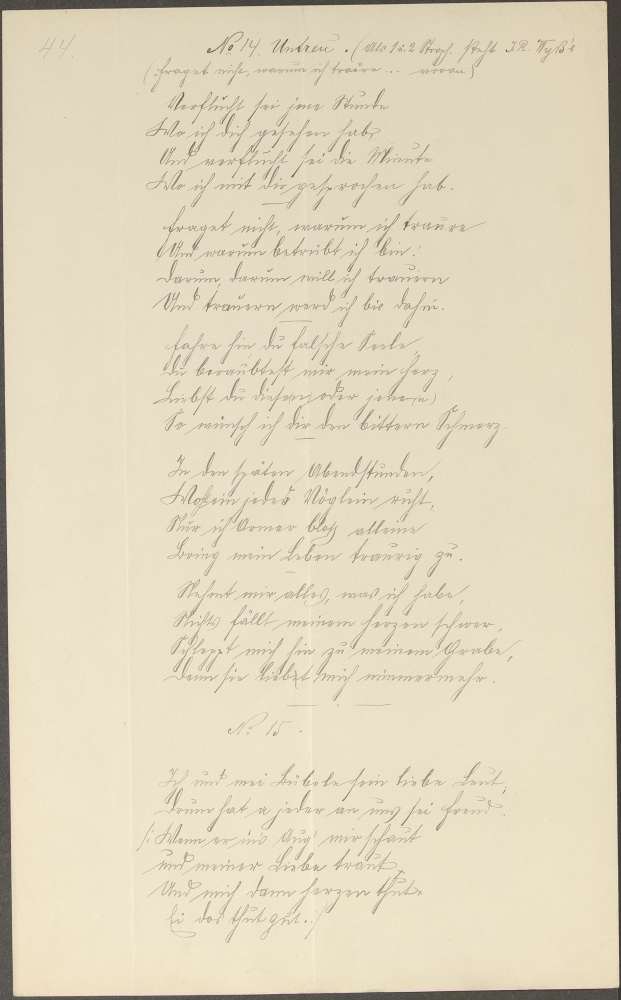 44.
No 14. Untreu. (Als 1 u. 2 Stroph. steht J.R. Wyß's
(: Fraget nicht, warum ich traure .. voran)
Verflucht sei jene Stunde
Wo ich dich gesehen habe
Und verflucht sei die Minute
Wo ich mit dir gesprochen hab.
Fraget nicht, warum ich traure
Und warum betrübt ich bin:
Darum, darum will ich trauern
Und trauern werd ich bis dahin.
Fahre hin, du falsche Seele,
Du beraubtest mir mein Herz,
Liebst du diesen oder jenen)
So wünsch ich dir den bittern Schmerz.
In den späten Abendstunden,
Wo ein jedes Vöglein ruht,
Nur ich Armer bloß alleine
Bring mein Leben traurig zu.
Nehmt mir alles, was ich habe,
Nichts fällt meinem Herzen schwer,
Schleppt mich hin zu meinem Grabe,
Denn sie liebet mich nimmermehr.
No 15.
Ich und mei Bübele sein liebe Leut,
Drum hat a jeder an uns sei Freud.
/: Wenn er ins Aug' mir schaut
und meiner Liebe traut
Und mich dann herzen thut
Ei das thut gut. :/